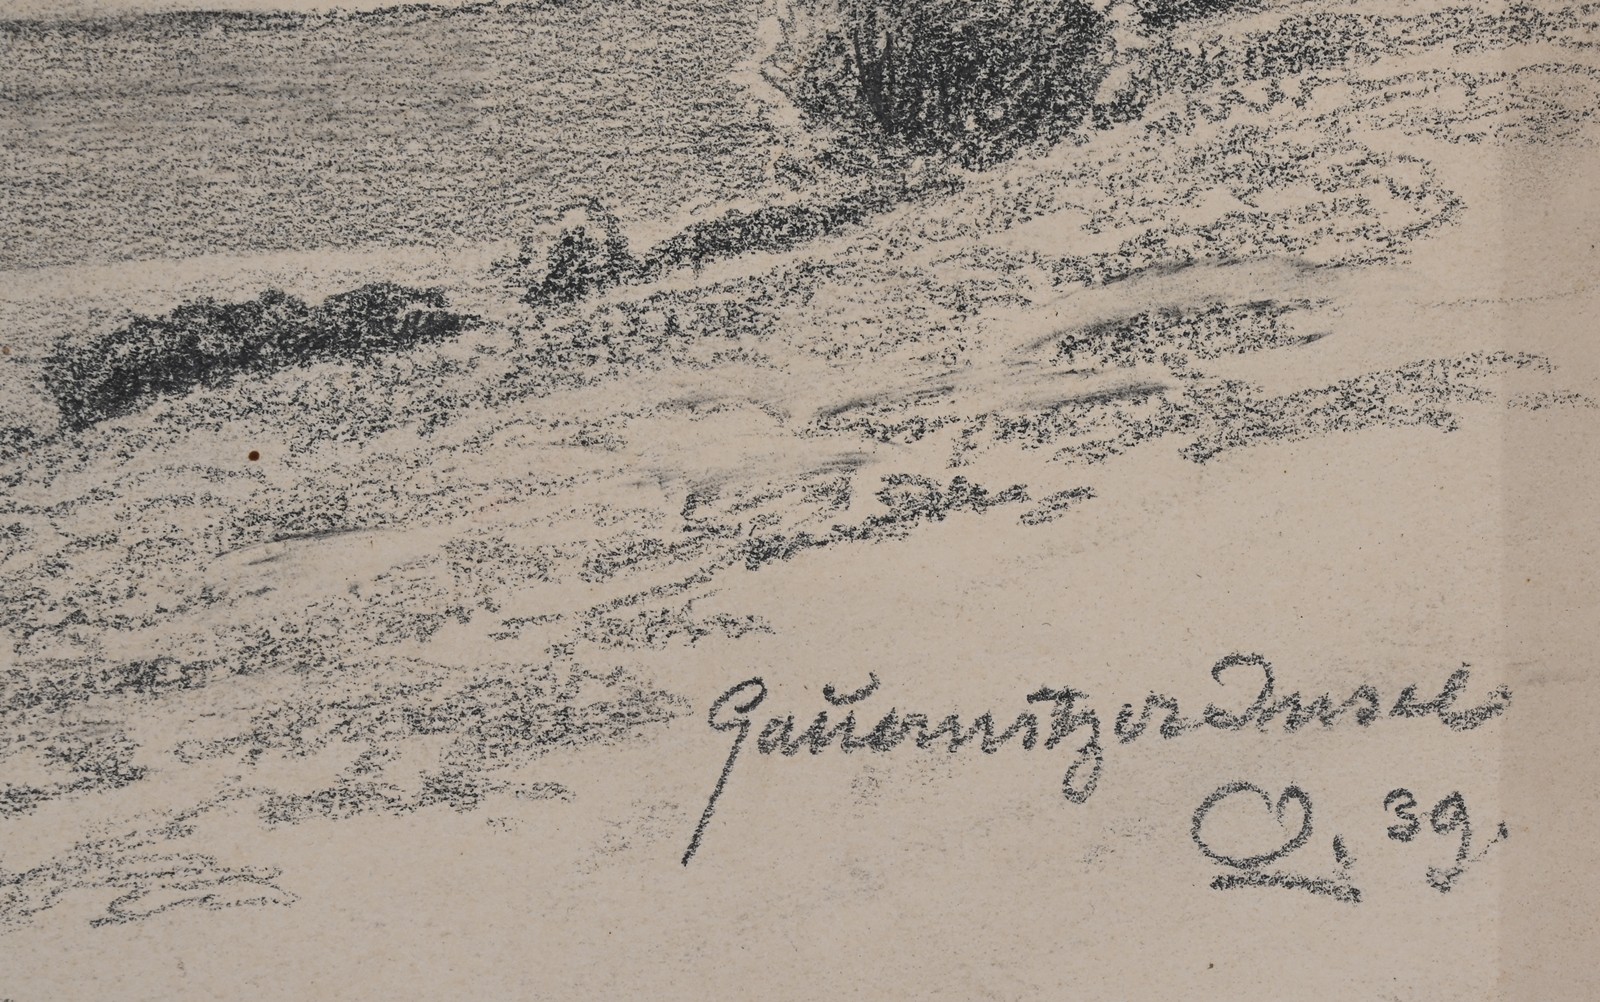 Gauernitzer Insel
O, 39.